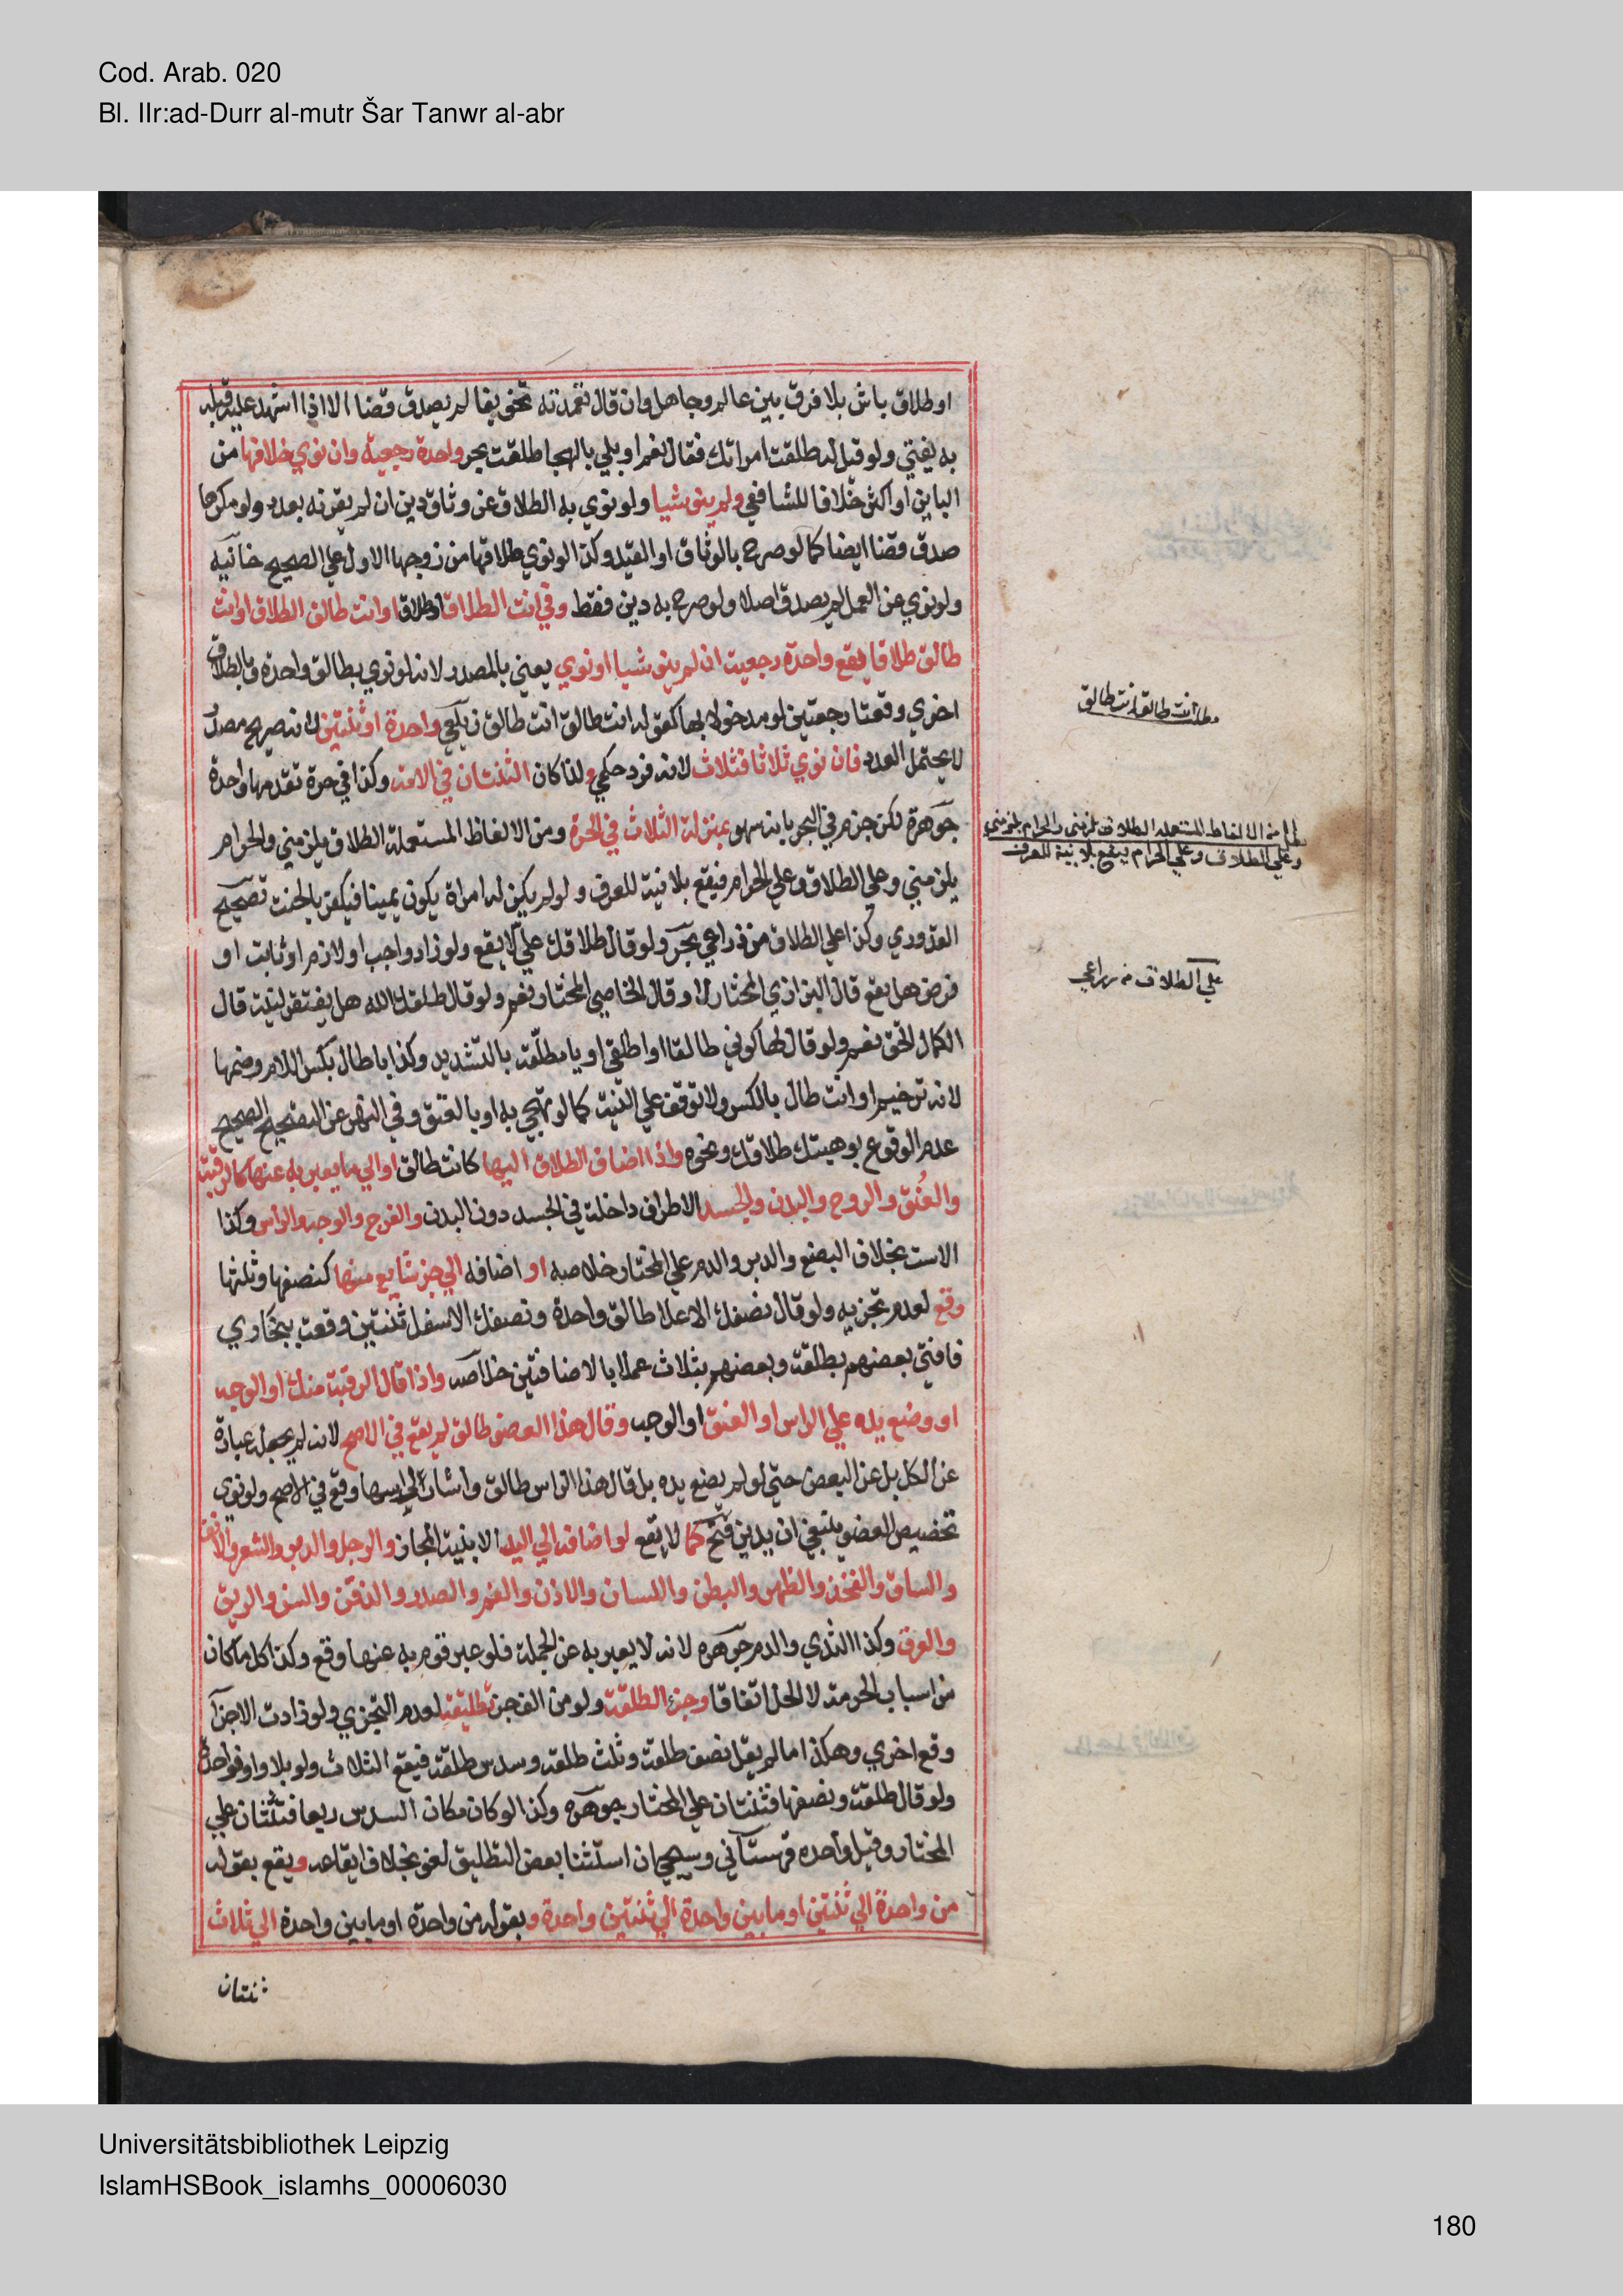 Cod. Arab. 020
Bl. IIr:ad-Durr al-mutr Šar Tanwr al-abr
او طلاق باش بلا فرق بين عالم وجاهل وان قال تعمدته تخويفا لم يصدق قضا الا اذا اشهد عليه قبله
به يفتي ولو قيل له طلقت امراتك فقال نعم او بلي بالهجا طلقت بحر واحدة رجعية وان نوي خلافها من
الباين او اكثر خلافا للشافعي ولم ينو شيا ولو نوي به الطلاق عن وثاق دين ان لم يقرنه بعدد ولو مكرها
صدق قضا ايضا كما لو صرح بالوثاق او القيد وكذا لو نوي طلاقها من زوجها الاول علي الصحيح خانيه
ولو نوي عن العمل لم يصدق اصلا ولو صرح به دين فقط وفي انت الطلاق او طلاق او انت طالق الطلاق او انت
طالق طلاقا يقع واحدة رجعية ان لم ينو شيا او نوي يعني بالمصدر لانه لو نوي بطالق واحدة وبالطلاق
اخري وقعتا رجعتين لو مدخولا بها كقوله انت طالق انت طالق زيلعي واحدة او ثنتين لانه صريح مصدر
لا يحتمل العدد فان نوي ثلاثا فثلاث لانه فرد حكمي ولذا كان الثنتان في الامه وكذا في حرة تقدمها واحدة
جوهرة لكن جزم في البحر بانه سهو بمنزلة الثلاث في الحرة ومن الالفاظ المستعملة الطلاق يلزمني والحرام
يلزمني وعلي الطلاق وعلي الحرام فيقع بلا نية للعرف ولو لم يكن له امراة يكون يمينا فيكفر بالحنث تصحيح
القدوري وكذا علي الطلاق من ذراعي بحر ولو قال طلاقك علي لا يقع ولو زاد واجب او لازم او ثابت او
فرض هل يقع قال البزازي المختار لا وقال الخاصي المختار نعم ولو قال طلقك الله هل يفتقر لنية قال
الكمال الحق نعم ولو قال لها كوني طالقا او اطلقي او يا مطلقة بالتشديد وكذا يا طال بكسر اللام وضمها
لانه ترخيم او انت طال بالكسر ولا توقف علي النية كما لو تهجي به او بالعتق وفي النهر عن التصحيح الصحيح
عدم الوقوع بوهبتك طلاقك ونحوه واذا اضاف الطلاق اليها كانت طالق او الي ما يعبر به عنها كالرقبة
والعنق والروح والبدن والجسد الاطراف داخلة في الجسد دون البدن والفرج والوجه والراس وكذا
الاست بخلاف البضع والدبر والدم علي المختار خلاصه او اضافه الي جز شايع منها كنصفها وثلثها
وقع لعدم تجزيه ولو قال نصفك الاعلا طالق واحدة ونصفك الاسفل ثنتين وقعت ببخاري
فافتي بعضهم بطلقة وبعضهم بثلاث عملا بالاضافتين خلاصه واذا قال الرقبة منك او الوجه
او وضع يده علي الراس او العنق او الوجه وقال هذا العضو طالق لم يقع في الاصح لانه لم يجعله عبارة
عن الكل بل عن البعض حتي لو لم يضع يده بل قال هذا الراس طالق واشار الي راسها وقع في الاصح ولو نوي
تخصيص العضو ينبغي ان يدين فتح كما لا يقع لو اضافه الي اليد الا بنية المجاز والرجل والدبر والشعر والانف
والساق والفخذ والظهر والبطن واللسان والاذن والفم والصدر والذقن والسن والريق
والعرق وكذا الثدي والدم جوهره لانه لا يعبر به عن الجملة فلو عبر قوم به عنها وقع وكذا كل ما كان
من اسباب الحرمة لا الحل اتفاقا وجزء الطلقة ولو من الف جز تطليقة لعدم التجزي ولو زادت الاجزا
وقع اخري وهكذا ما لم يقل نصف طلقة وثلث طلقة وسدس طلقة فيقع الثلاث ولو بلا واو فواحدة
ولو قال طلقة ونصفها فثنتان علي المختار جوهره وكذا لو كان مكان السدس ربعا فثنتان علي
المختار وقيل واحده قهستاني وسيجي ان استثنا بعض التطليق لغو بخلاف ايقاعه ويقع بقوله
من واحدة الي ثنتين او ما بين واحدة الي ثنتين واحدة وبقوله من واحدة او ما بين واحدة الي ثلاث
ثنتان
مطلب انت طالق انت طالق
من الالفاظ المستعمله الطلاق يلزمني والحرام يلزمني
وعلي الطلاق وعلي الحرام فيقع بلا نية للعرف
علي الطلاق من ذراعي
Universitätsbibliothek Leipzig
IslamHSBook_islamhs_00006030
180